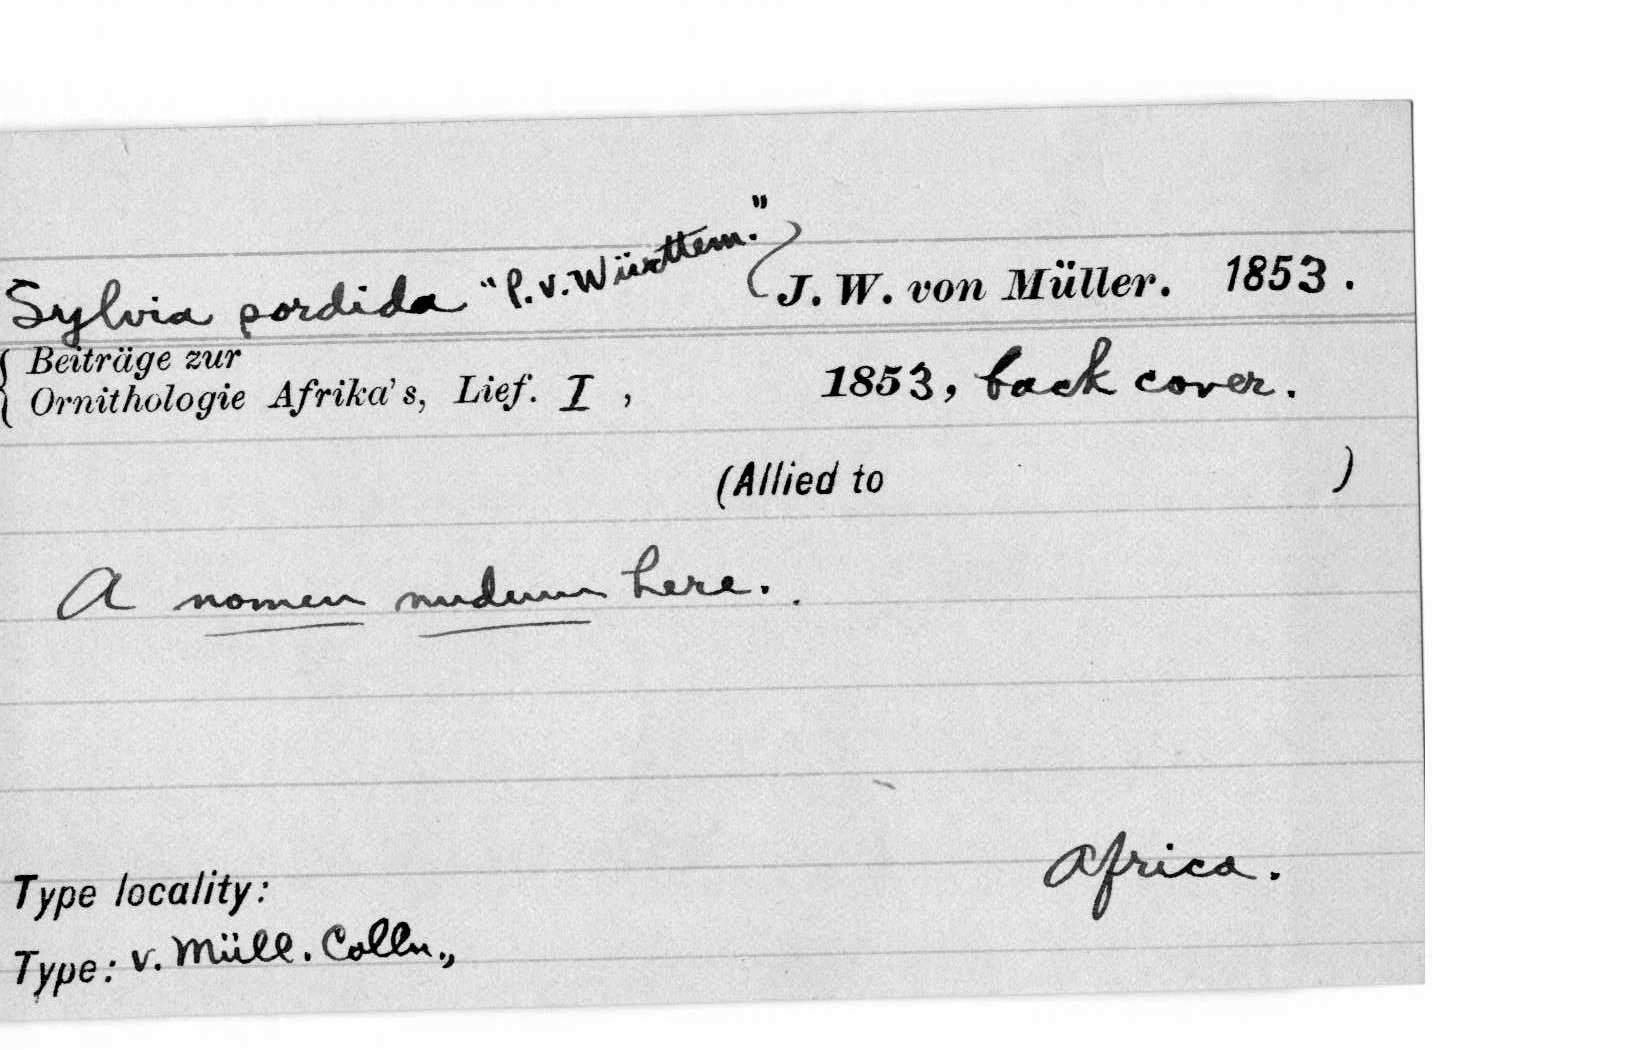 Sylvia pordida "P. v. Württem." J. W. von Müller. 1853.
Beiträge zur
Ornithologie Afrika's, Lief. I, 1853, back cover.
(Allied to )
A nomen nudum here.
Africa.
Type locality:
Type: v. Müll. Colln.,